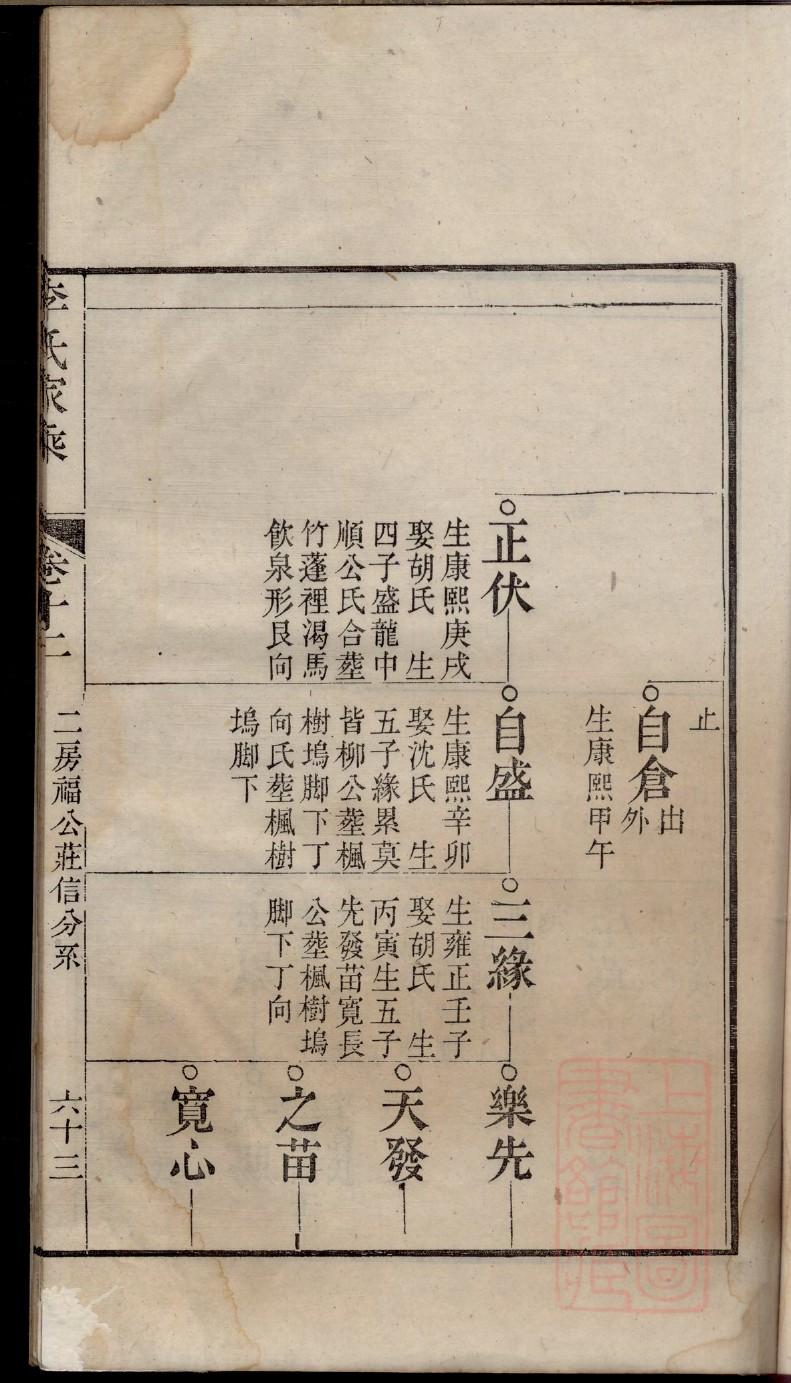 止
自倉
出
外
生康熙甲午
正伏
生康熙庚戌
娶胡氏 生
四子盛龍中
順公氏合塟
竹蓬裡渴馬
飲泉形艮向
自盛
生康熙辛卯
娶沈氏 生
五子緣累莫
皆柳公塟楓
樹塢脚下丁
向氏塟楓樹
塢脚下
三緣
生雍正壬子
娶胡氏 生
丙寅生五子
先發苗寬長
公塟楓樹塢
脚下丁向
樂先
天發
之苗
寬心
李氏家乘
卷十二
二房福公莊信分系
六十三
上海圖
書館藏